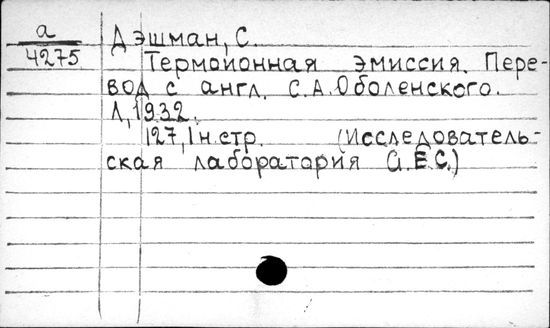 а
4275
Дэшман, С.
Термоионная эмиссия. Пере-
вод с англ. С.А.Оболенского.
Л, 1932.
127, 1 н.стр. (Исследователь-
ская лаборатория G.E.C.)